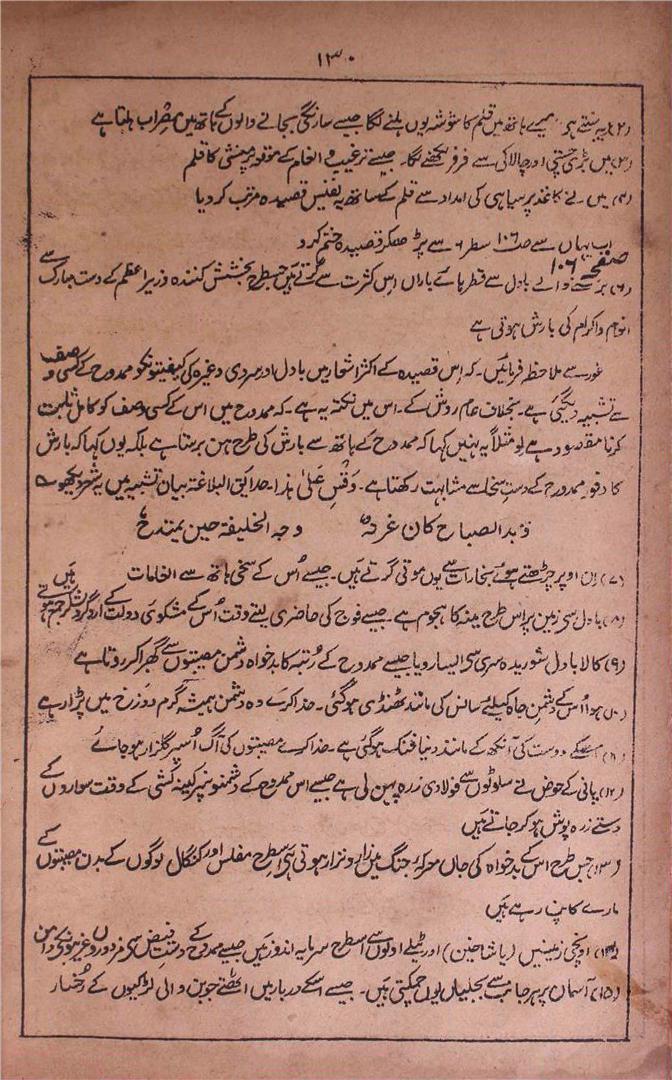 ۱۳۰
(۲) یہ سنتے ہی میرے ہاتھ میں قلم کا شوشہ یوں ہلنے لگا جیسے سارنگی بجانے والوں کے ہاتھ میں مضراب ہلتا ہے
(۳) میں بڑی چستی اور چالاکی سے فرفر لکھنے لگا۔ جیسے ترغیب و انعام کے موقعہ پر منشی کا قلم
(۴) میں نے کاغذ پر سیاہی کی امداد سے قلم کے ساتھ یہ نفیس قصیدہ مرتب کر دیا
اب یہاں سے صـ ۱۰۶ سطر ۶ سے پڑھکر قصیدہ ختم کرو
صفحہ ۱۰۶
(۶) برسنے والے بادل سے قطرہائے باراں اس کثرت سے گرتے ہیں جسطرح بخشش کنندہ وزیر اعظم کے دست مبارک سے
انوم واکرام کی بارش ہوتی ہے
غور سے ملاحظہ فرمائیں۔ کہ اس قصیدہ کے اکثر اشعار میں بادل اور سردی وغیرہ کی کیفیتونکو ممدورح کے کسی وصف
سے تشبیہ دیگئی ہے۔ بخلاف عام روش کے۔ اس میں نکتہ یہ ہے۔ کہ ممدورح میں اس کے کسی وصف کو کامل ثابت
کرنا مقصود ہے لو مثلاً یہ نہیں کہا کہ ممدورح کے ہاتھ سے بارش کی طرح ہن برستا ہے بلکہ یوں کہا کہ بارش
کا وفور ممدورح کے دست سخا سے مشابہت رکھتا ہے۔ وقس علیٰ ہذا۔ حدایق البلاغۃ بیان تشبیہ میں یہ شعر دیکھو ؎
وبدا الصباح کان غرتہ وجہ الخلیفۃ حین یمتدح
(۷) ان اوپر چڑھتے ہوئے بخارات سے یوں موتی گرتے ہیں۔ جیسے اُس کے سخی ہاتھ سے انعامات ہیں
(۸) بادل سے زمین پر اس طرح مینہ کا ہجوم ہے۔ جیسے فوج کی حاضری لیتے وقت اُس کے مشکوی دولت کے اردگرد لشکر جمع ہوتے
(۹) کالا بادل شوریدہ سری سے ایسا رویا جیسے ممدورح کے رُتبہ کا بدخواہ دشمن مصیبتوں سے گھبرا کر روتا ہے
(۱۰) ہوا اُس کے دشمن جاہ کیلئے سانس کی مانند ٹھنڈی ہوگئی۔ خدا کرے وہ دشمن ہمیشہ گرم دوزخ میں پڑا رہے
(۱۱) اسکے دوست کی آنکھ کے مانند دنیا خنک ہوگئی ہے۔ خدا کرے مصیبتوں کی آگ اُسپر گلزار ہو جائے
(۱۲) پانی کے حوض نے سلوٹوں سے فولادی زرہ پہن لی ہے جیسے اس ممدوح کے دشمنونپر کینہ کشی کے وقت سواروں کے
دستے زرہ پوش ہو کر جاتے ہیں
(۱۳) جس طرح اس کے بدخواہ کی جاں معرکۂ جنگ میں زار ونزار ہوتی ہے اسطرح مفلس اور کنگال لوگوں کے بدن مصیبتوں کے
مارے کانپ رہے ہیں
(۱۴) اونچی زمینیں (یا شاخین) اور ٹیلے اولوں سے اسطرح سرمایہ اندوز ہیں جیسے ممدوح کے دست فیض سے مزدوروں وغیرہ کے دامن
(۱۵) آسمان پر ہر جانب سے بجلیاں یوں چمکتی ہیں۔ جیسے اسکے دربار میں اٹھتے جوبن والی لڑکیوں کے رُخسار